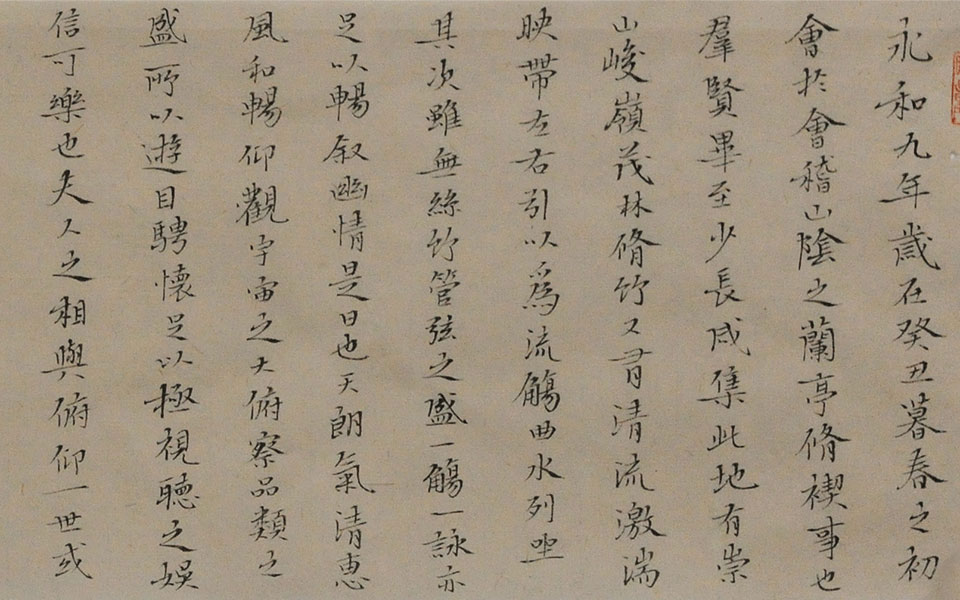 永和九年歲在癸丑暮春之初
會於會稽山陰之蘭亭脩禊事也
羣賢畢至少長咸集此地有崇
山峻嶺茂林脩竹又有清流激湍
映帶左右引以為流觴曲水列坐
其次雖無絲竹管弦之盛一觴一詠亦
足以暢叙幽情是日也天朗氣清惠
風和暢仰觀宇宙之大俯察品類之
盛所以遊目騁懷足以極視聽之娛
信可樂也夫人之相與俯仰一世或